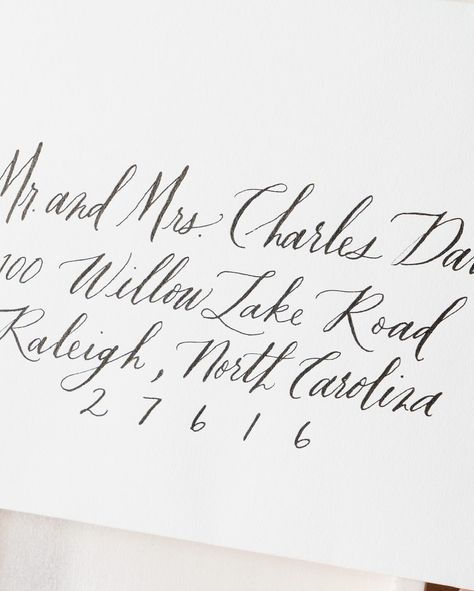 Mr. and Mrs. Charles Da
100 Willow Lake Road
Raleigh, North Carolina
27616